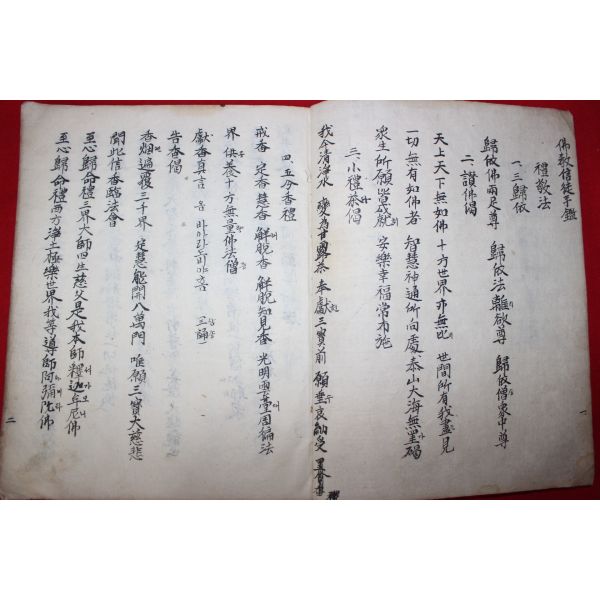 佛教信徒手鑑
禮敬法
一、三歸依
歸依佛兩足尊 歸依法離欲尊 歸依僧衆中尊
二、讚佛偈
天上天下無如佛 十方世界亦無比 世間所有我盡見
一切無有如佛者 智慧神通所向處 泰山大海無罣碍
衆生所願皆成就 安樂幸福常布施
三、小禮茶偈
我今清淨水 變為甘露茶 奉獻三寶前 願垂哀納受
四、五分香禮
戒香 定香 慧香 解脫香 解脫知見香 光明雲臺周徧法
界 供養十方無量佛法僧
獻香真言 옴 바아라 도비야 훔 三誦
告香偈
香烟遍覆三千界 定慧能開八萬門 唯願三寶大慈悲
聞此信香臨法會
至心歸命禮三界大師四生慈父是我本師釋迦牟尼佛
至心歸命禮西方淨土極樂世界我等導師阿彌陀佛
一
二